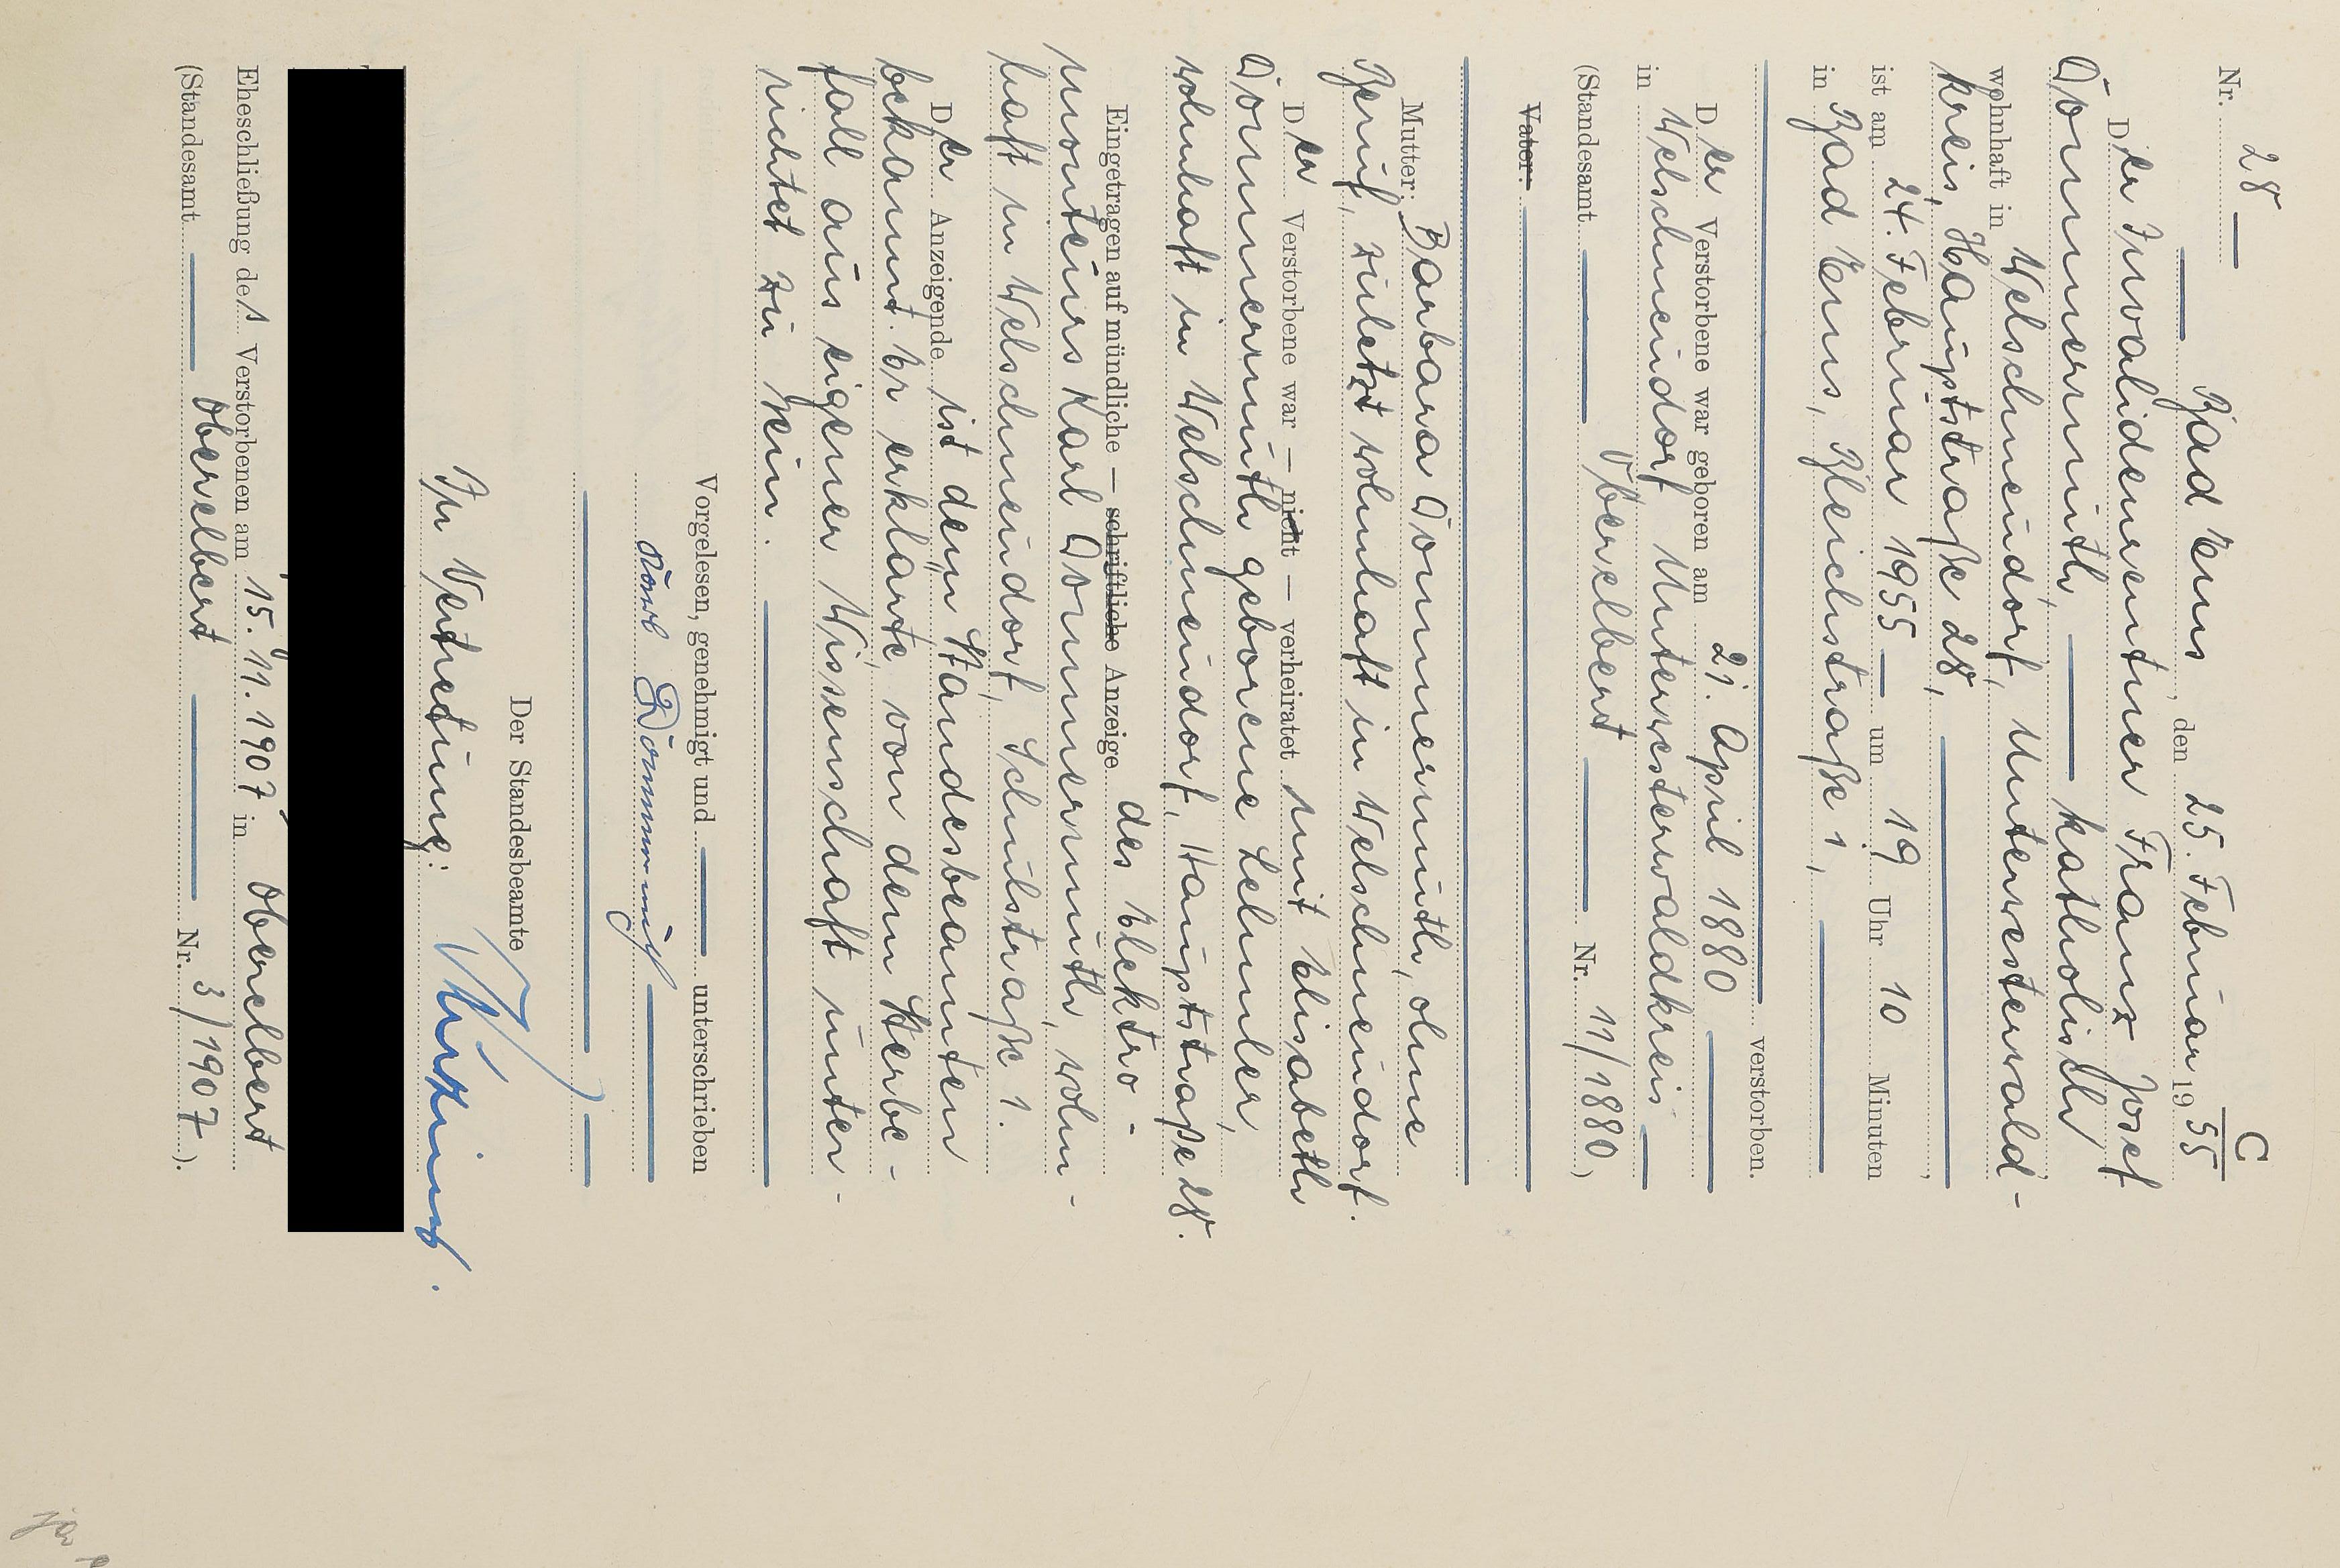 C
Nr. 28
Bad Ems, den 25. Februar 1955
Der Invalidenrentner Franz Josef
Donnermuth, katholisch
wohnhaft in Welschneudorf, Unterwesterwald-
kreis, Hauptstraße 28,
ist am 24. Februar 1955 um 19 Uhr 10 Minuten
in Bad Ems, Bleichstraße 1,
verstorben.
Der Verstorbene war geboren am 21. April 1880
in Welschneudorf Unterwesterwaldkreis
(Standesamt Oberelbert Nr. 11/1880)
Vater:
Mutter: Barbara Donnermuth, ohne
Beruf, zuletzt wohnhaft in Welschneudorf.
Der Verstorbene war — nicht — verheiratet mit Elisabeth
Donnermuth geborene Lehmler,
wohnhaft in Welschneudorf, Hauptstraße 28.
Eingetragen auf mündliche — schriftliche Anzeige des Elektro-
monteurs Karl Donnermuth, wohn-
haft in Welschneudorf, Schulstraße 1.
Der Anzeigende ist dem Standesbeamten
bekannt. Er erklärte, von dem Sterbe-
fall aus eigener Wissenschaft unter-
richtet zu sein.
Vorgelesen, genehmigt und unterschrieben
Karl Donnermuth
Der Standesbeamte
In Vertretung:
Eheschließung des Verstorbenen am 15. 11. 1907 in Oberelbert
(Standesamt Oberelbert Nr. 3/1907).